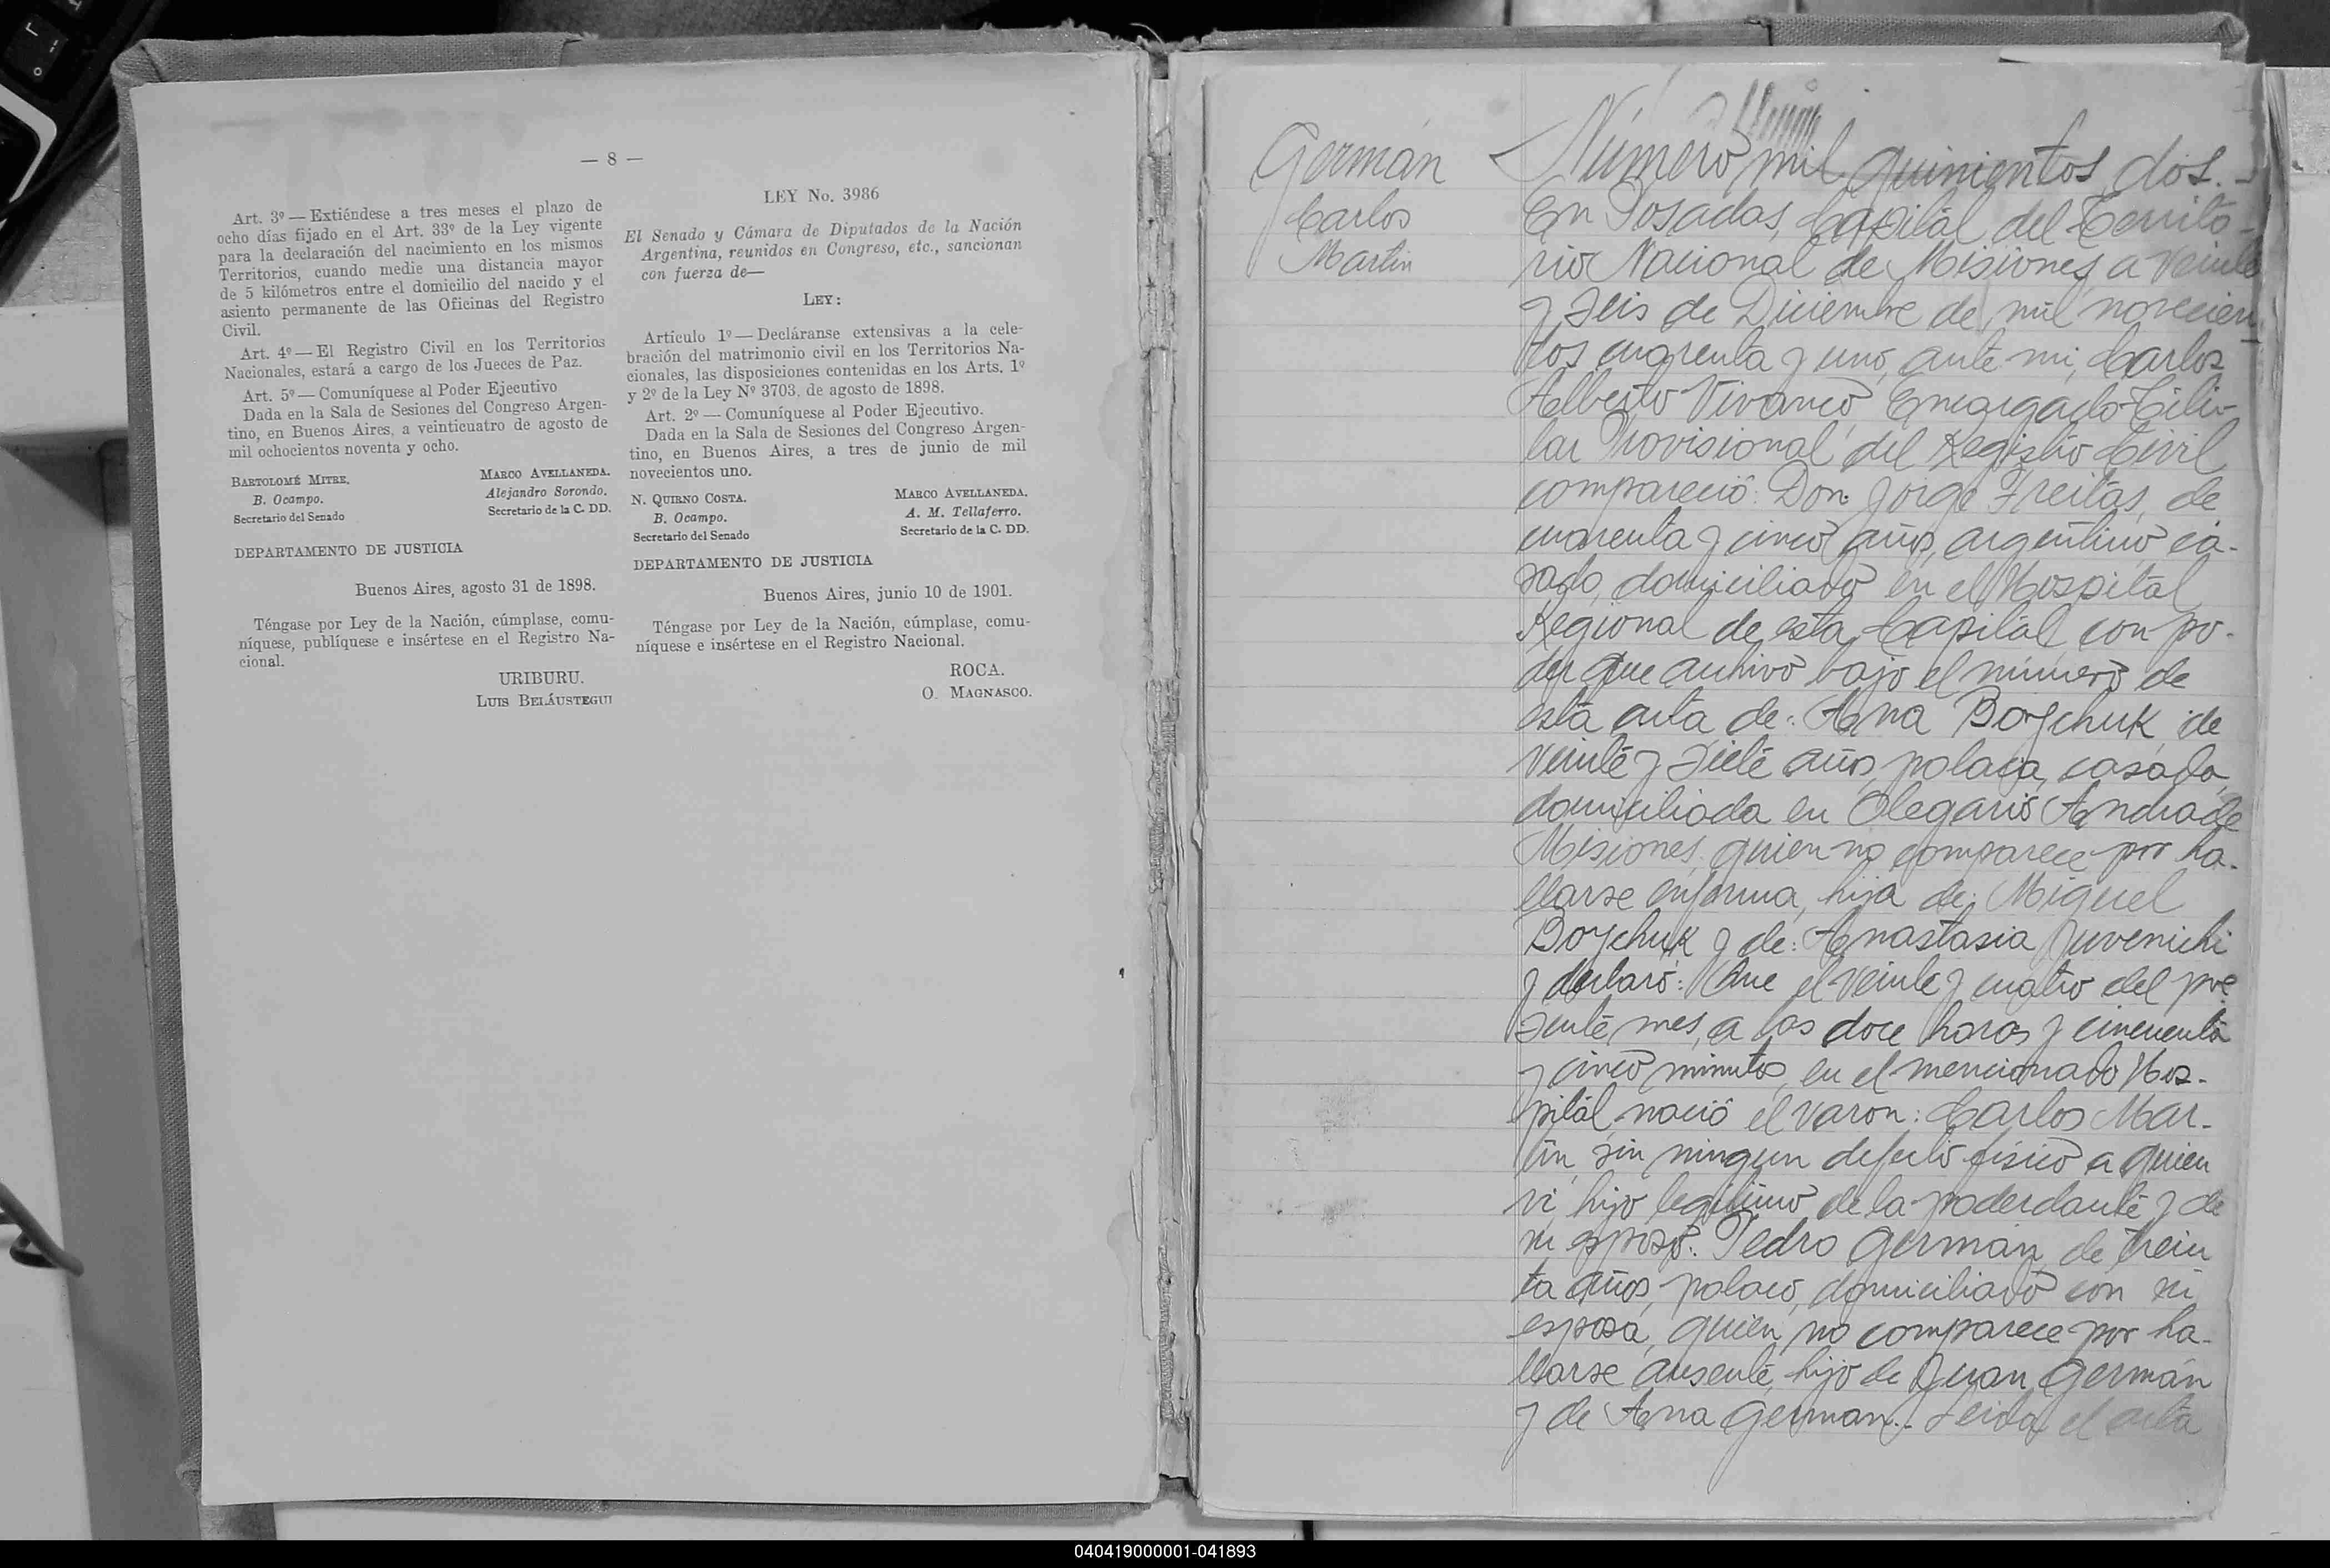 — 8 —
Art. 3º — Extiéndese a tres meses el plazo de
ocho días fijado en el Art. 33º de la Ley vigente
para la declaración del nacimiento en los mismos
Territorios, cuando medie una distancia mayor
de 5 kilómetros entre el domicilio del nacido y el
asiento permanente de las Oficinas del Registro
Civil.
Art. 4º — El Registro Civil en los Territorios
Nacionales, estará a cargo de los Jueces de Paz.
Art. 5º — Comuníquese al Poder Ejecutivo
Dada en la Sala de Sesiones del Congreso Argen-
tino, en Buenos Aires, a veinticuatro de agosto de
mil ochocientos noventa y ocho.
BARTOLOMÉ MITRE. MARCO AVELLANEDA.
B. Ocampo. Alejandro Sorondo.
Secretario del Senado Secretario de la C. DD.
DEPARTAMENTO DE JUSTICIA
Buenos Aires, agosto 31 de 1898.
Téngase por Ley de la Nación, cúmplase, comu-
níquese, publíquese e insértese en el Registro Na-
cional.
URIBURU.
LUIS BELÁUSTEGUI
LEY No. 3986
El Senado y Cámara de Diputados de la Nación
Argentina, reunidos en Congreso, etc., sancionan
con fuerza de—
LEY:
Artículo 1º — Decláranse extensivas a la cele-
bración del matrimonio civil en los Territorios Na-
cionales, las disposiciones contenidas en los Arts. 1º
y 2º de la Ley Nº 3703, de agosto de 1898.
Art. 2º — Comuníquese al Poder Ejecutivo.
Dada en la Sala de Sesiones del Congreso Argen-
tino, en Buenos Aires, a tres de junio de mil
novecientos uno.
N. QUIRNO COSTA. MARCO AVELLANEDA.
B. Ocampo. A. M. Tellaferro.
Secretario del Senado Secretario de la C. DD.
DEPARTAMENTO DE JUSTICIA
Buenos Aires, junio 10 de 1901.
Téngase por Ley de la Nación, cúmplase, comu-
níquese e insértese en el Registro Nacional.
ROCA.
O. MAGNASCO.
Germán
Carlos
Martin
Número mil quinientos dos.-
En Posadas, Capital del Territo-
rio Nacional de Misiones, a veinte
y seis de Diciembre de mil novecien-
tos cuarenta y uno, ante mi, Carlos
Alberto Vivanco, Encargado Titu-
lar Provisional del Registro Civil
compareció: Don Jorge Freitas, de
cuarenta y cinco años, argentino ca-
sado, domiciliado en el Hospital
Regional de esta Capital con po-
der que archivo bajo el número de
esta acta de: Ana Boychuk, de
veinte y siete años, polaca, casada,
domiciliada en Olegario Andrade
Misiones, quien no comparece por ha-
llarse enferma, hija de: Miguel
Boychuk y de: Anastasia Juvenichi
y declaró: Que el veinte y cuatro del pre
sente mes, a las doce horas y cincuenta
y cinco minutos, en el mencionado Hos-
pital, nació el varon: Carlos Mar-
tin, sin ningun defecto físico a quien
vi hijo legitimo de la poderdante y de
su esposo: Pedro Germán, de trein
ta años, polaco, domiciliado con su
esposa, quien no comparece por ha-
llarse ausente, hijo de Juan Germán
y de Ana German.- Leida el acta
040419000001-041893